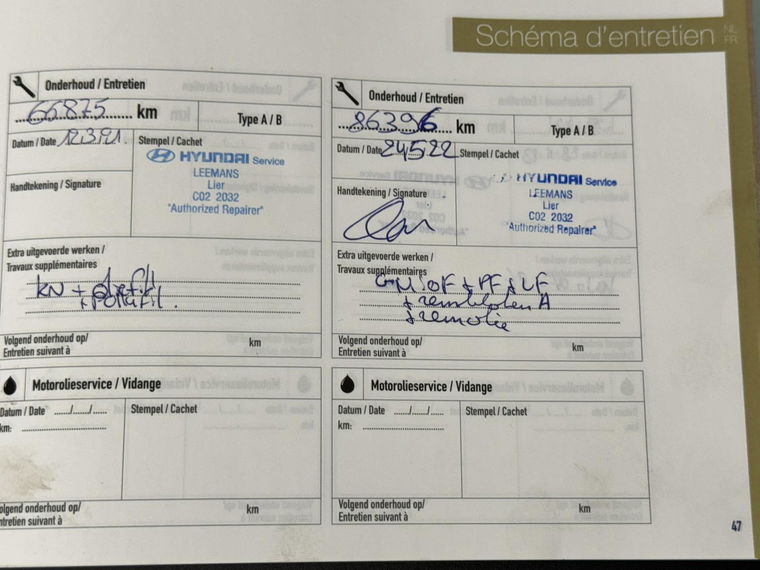 Schéma d'entretien NL FR
Onderhoud / Entretien
66875 km
Type A / B
Datum / Date 12.3.21.
Stempel / Cachet
HYUNDAI Service
LEEMANS
Lier
C02 2032
"Authorized Repairer"
Handtekening / Signature
Extra uitgevoerde werken /
Travaux supplémentaires
KN +
+ pollufil.
Volgend onderhoud op/
Entretien suivant à
km
Onderhoud / Entretien
86396 km
Type A / B
Datum / Date 24/5/22
Stempel / Cachet
HYUNDAI Service
LEEMANS
Lier
C02 2032
"Authorized Repairer"
Handtekening / Signature
Extra uitgevoerde werken /
Travaux supplémentaires
OF + PF + LF
+ remblokken A
+ remolie
Volgend onderhoud op/
Entretien suivant à
km
Motorolieservice / Vidange
Datum / Date ....../....../......
Stempel / Cachet
km:
olgend onderhoud op/
ntretien suivant à
km
Motorolieservice / Vidange
Datum / Date ....../....../......
Stempel / Cachet
km:
Volgend onderhoud op/
Entretien suivant à
km
47